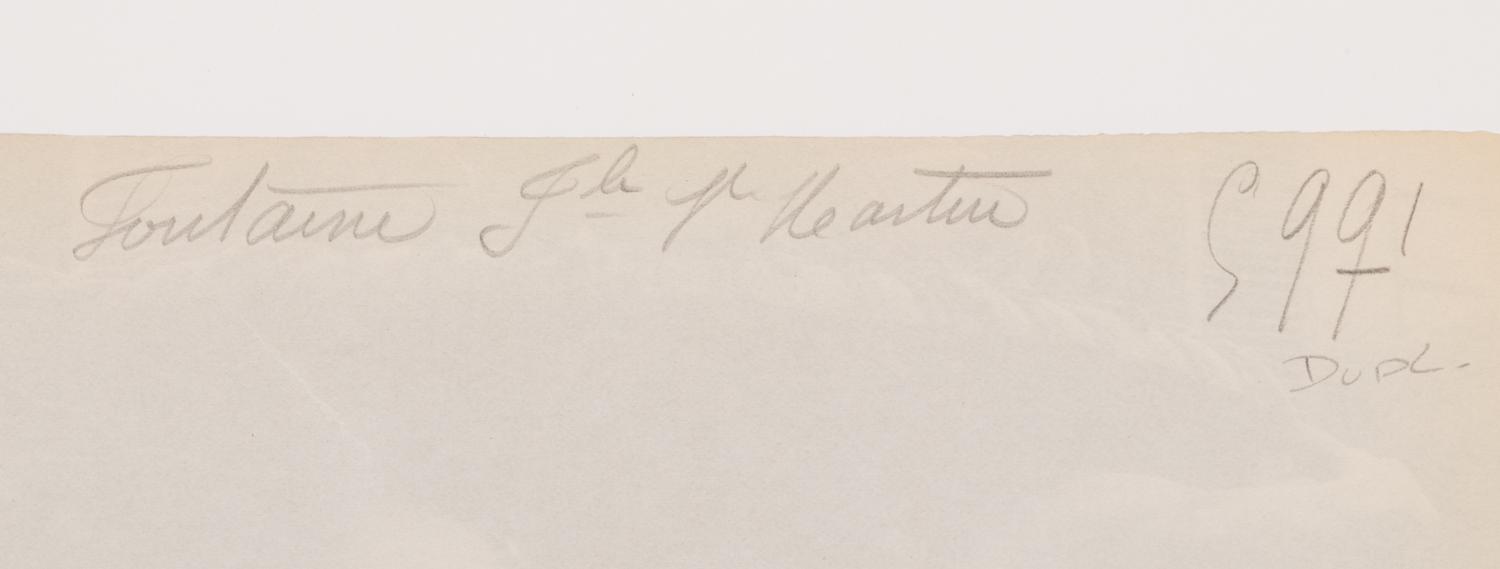 Fontaine Fb St Martin 5991
DUPL.